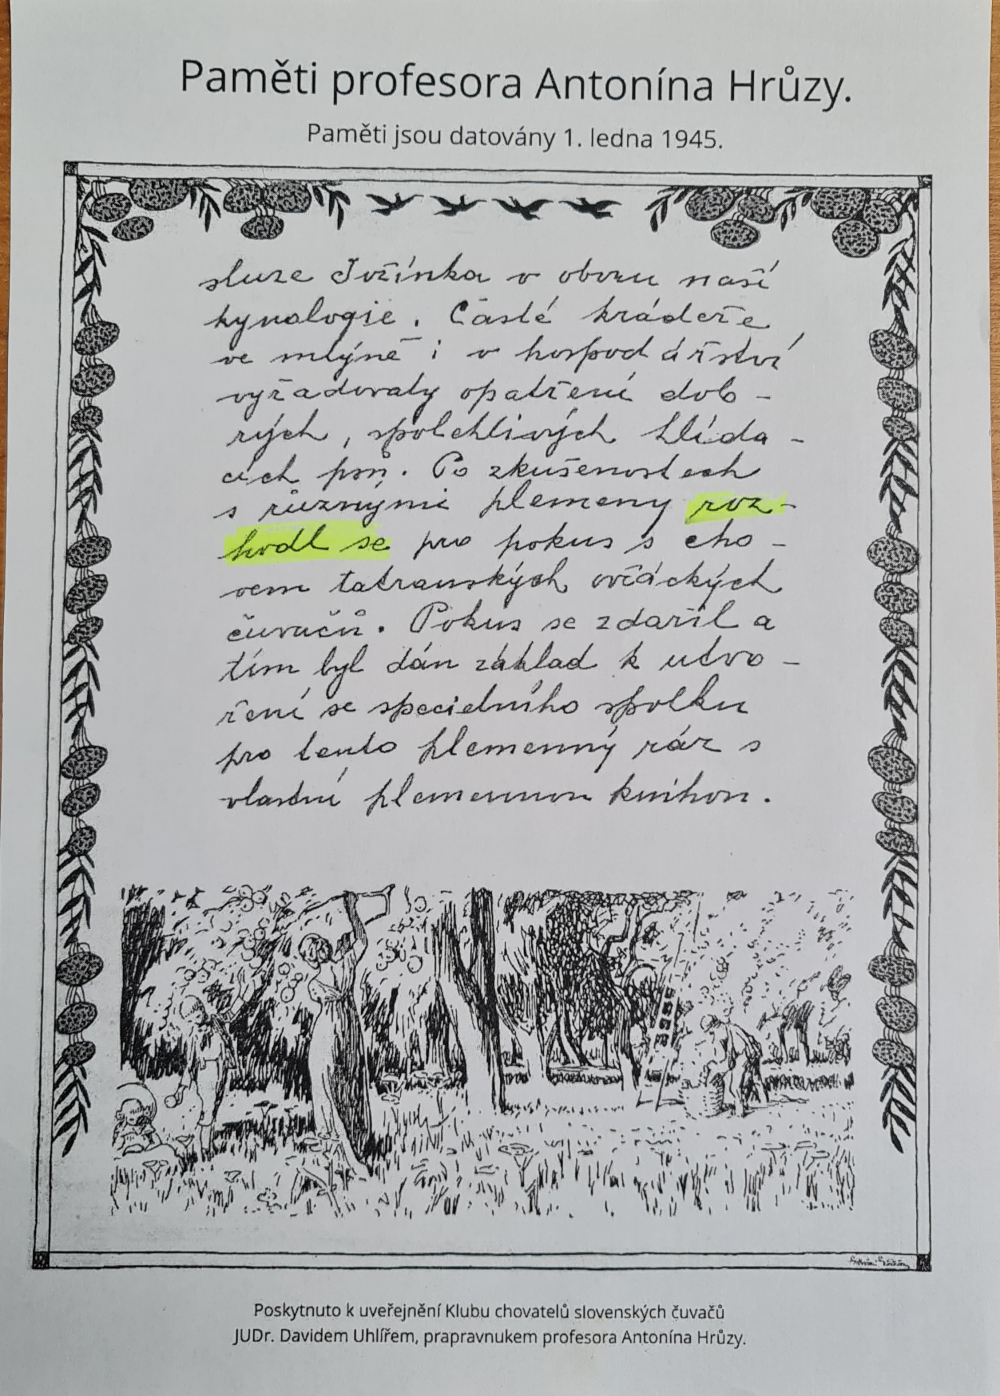 Paměti profesora Antonína Hrůzy.
Paměti jsou datovány 1. ledna 1945.
sluze Tožínka v oboru naší
kynologie. Časté krádeže
ve mlýně i v hospodářství
vyžadovaly opatření dob-
rých, spolehlivých hlída-
cích psů. Po zkušenostech
s různými plemeny roz-
hodl se pro pokus s cho-
vem tatranských ovčáckých
čuvačů. Pokus se zdařil a
tím byl dán základ k utvo-
ření se specielního spolku
pro tento plemenný ráz s
vlastní plemennou knihou.
Poskytnuto k uveřejnění Klubu chovatelů slovenských čuvačů
JUDr. Davidem Uhlířem, prapravnukem profesora Antonína Hrůzy.